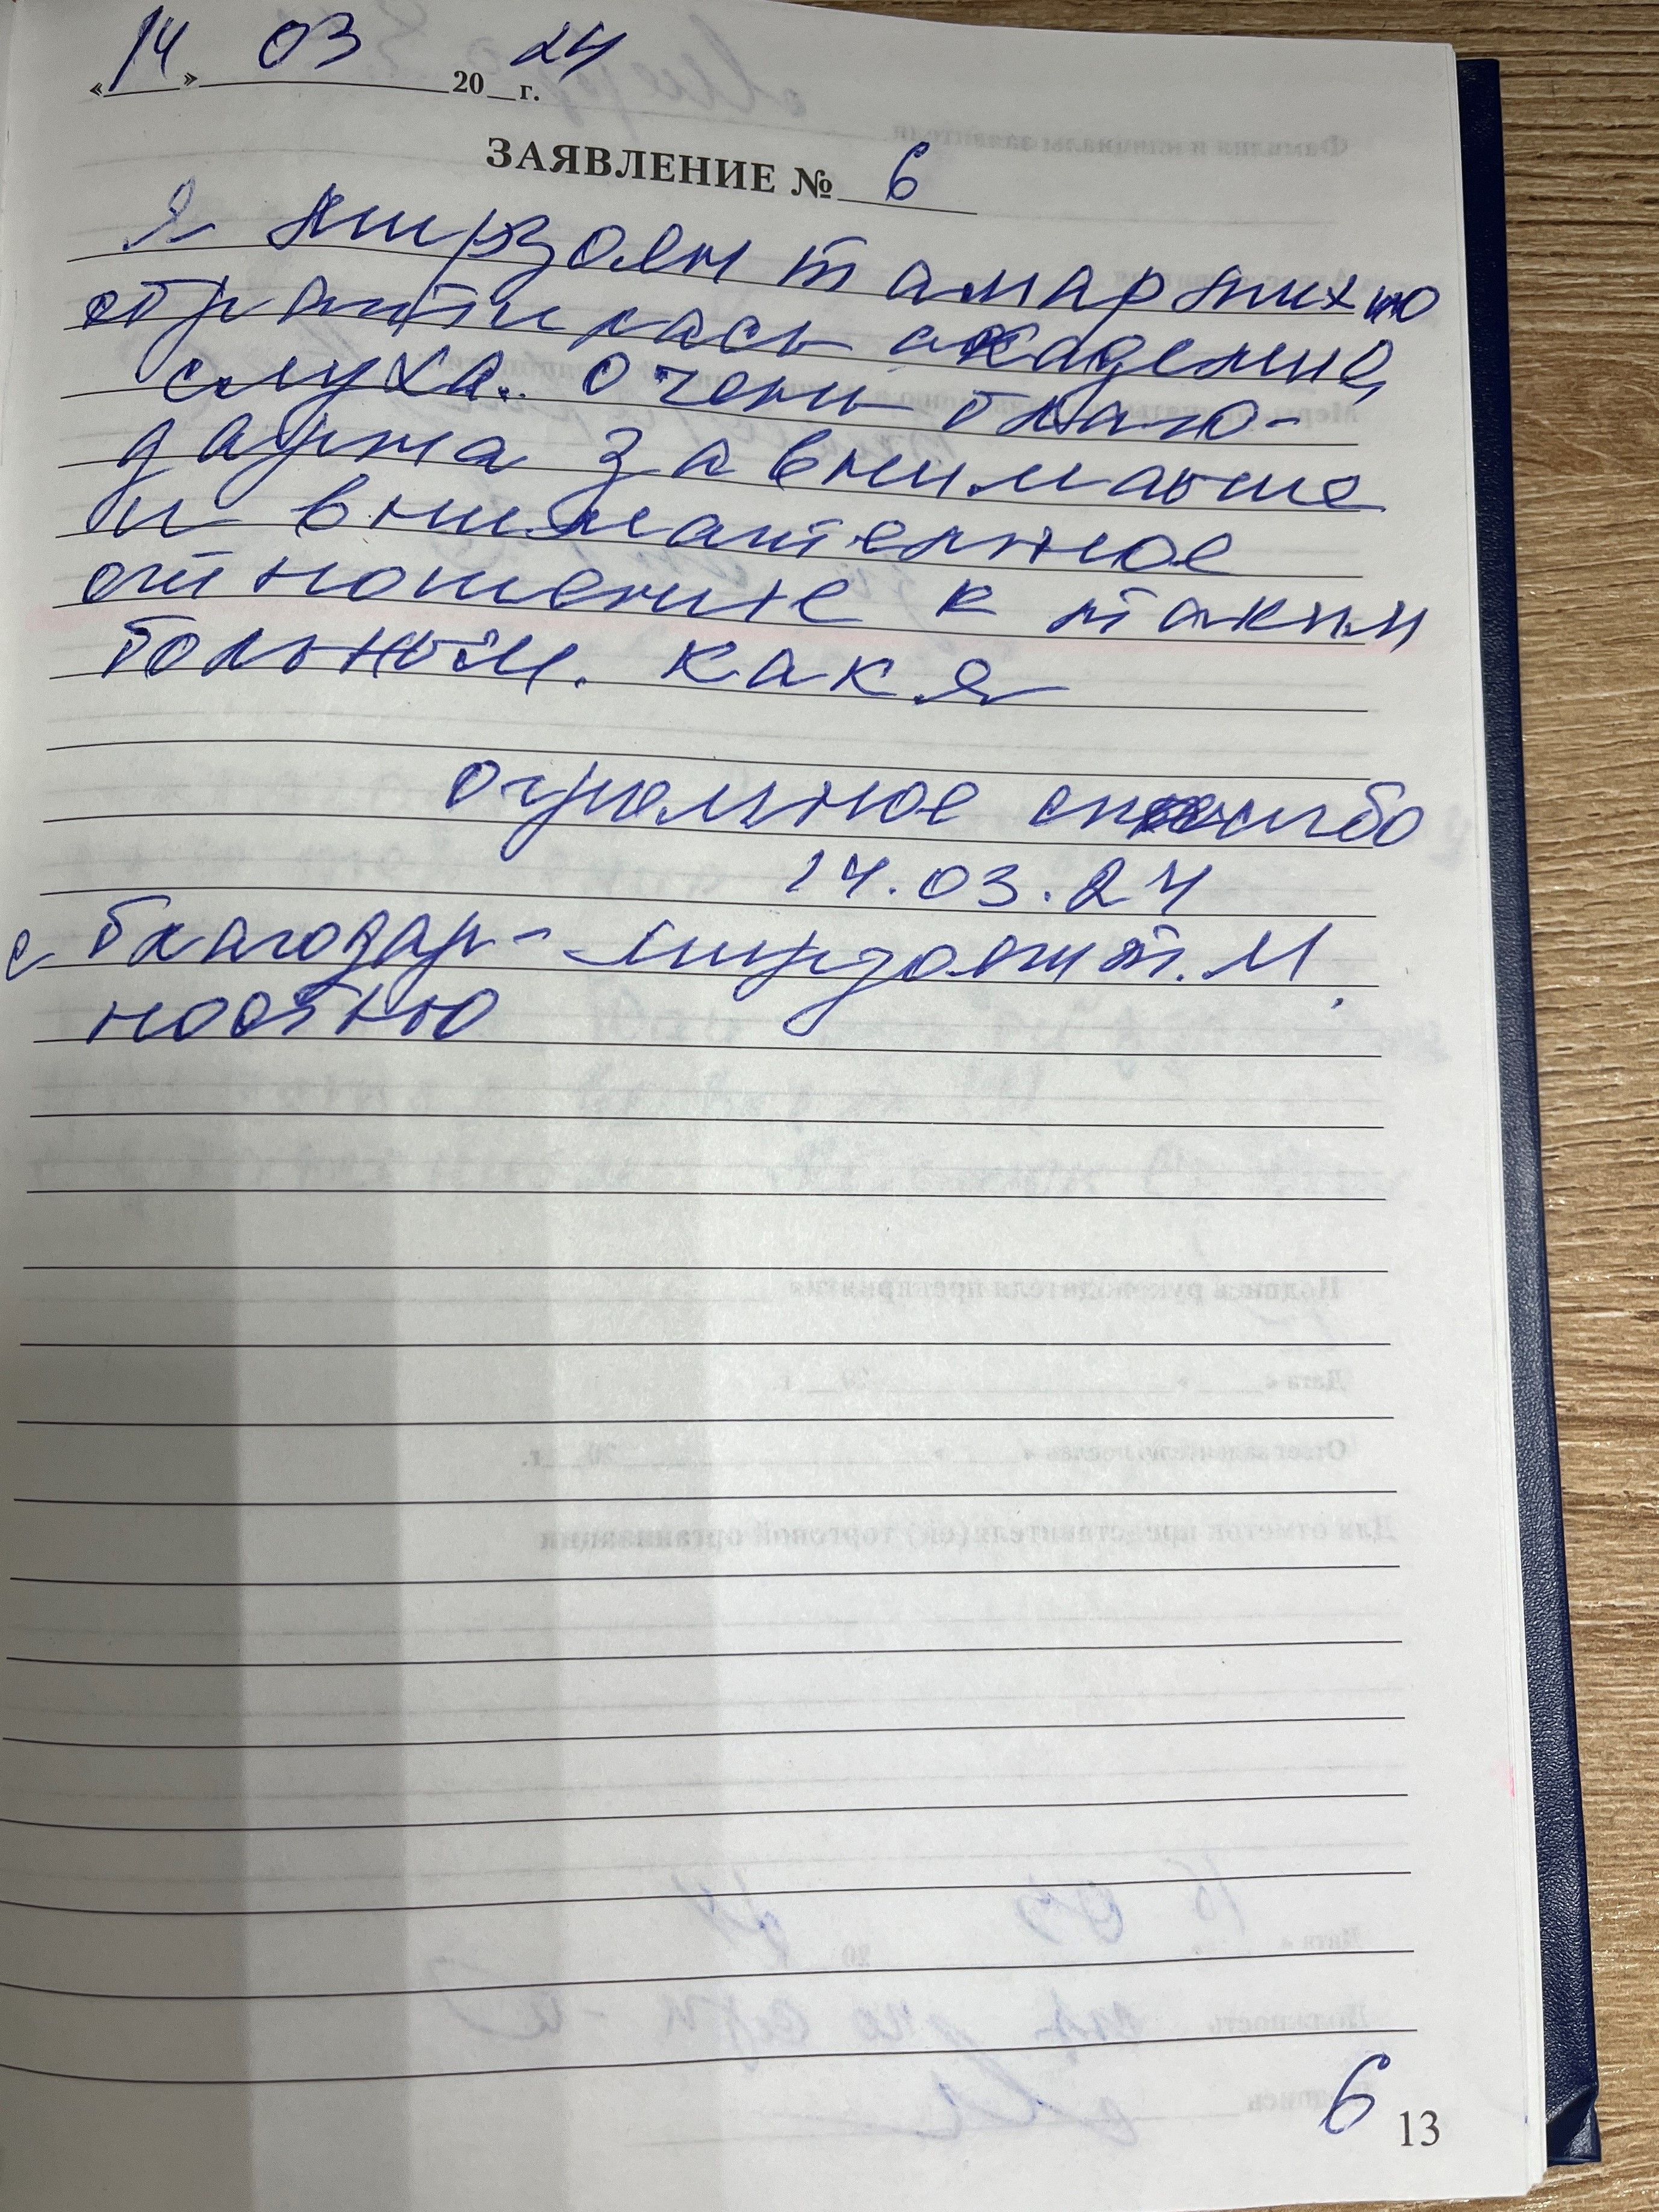 «14» 03 2024 г.
ЗАЯВЛЕНИЕ № 6
Я Мирзоян Тамара
обратилась академию
слуха.. очень благо-
дарна за внимание
и внимательное
отношение к таким
больным. как я
огромное спасибо
14.03.24
с благодар- Мирзоян т. М.
ностью
6
13